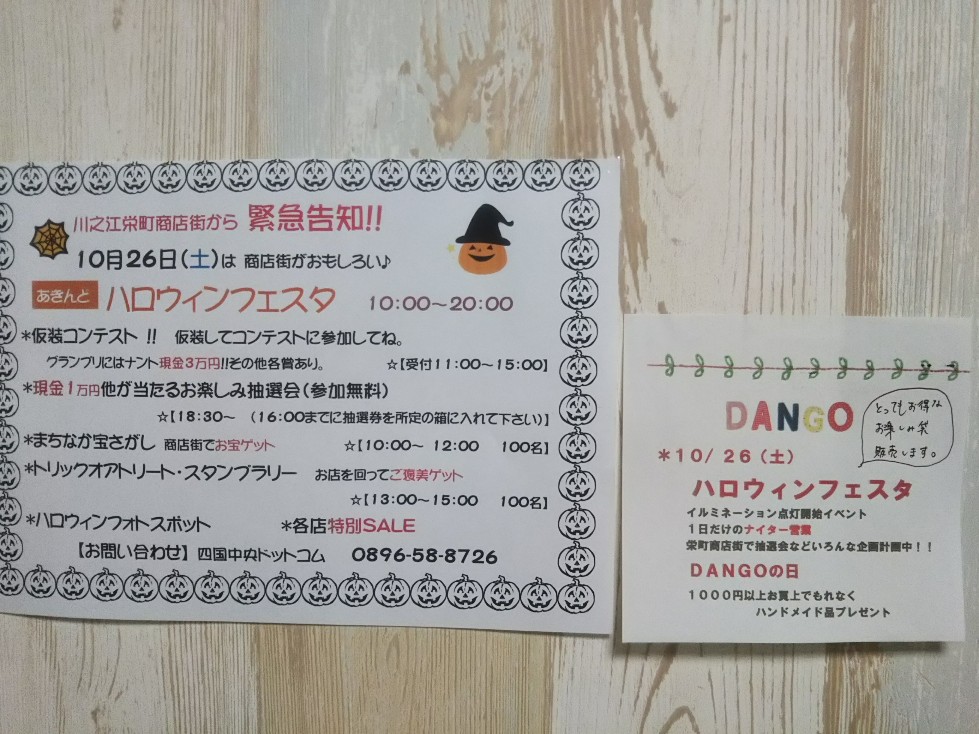 川之江栄町商店街から 緊急告知!!
10月26日(土)は 商店街がおもしろい♪
あきんど ハロウィンフェスタ 10:00～20:00
*仮装コンテスト !! 仮装してコンテストに参加してね。
グランプリにはナント現金3万円!!その他各賞あり。 ☆【受付11:00～15:00】
*現金1万円他が当たるお楽しみ抽選会(参加無料)
☆【18:30～ (16:00までに抽選券を所定の箱に入れて下さい)】
*まちなか宝さがし 商店街でお宝ゲット ☆【10:00～ 12:00 100名】
*トリックオアトリート・スタンプラリー お店を回ってご褒美ゲット
☆【13:00～15:00 100名】
*ハロウィンフォトスポット *各店特別SALE
【お問い合わせ】四国中央ドットコム 0896-58-8726
DANGO
とってもお得な
お楽しみ袋
販売します。
*10/26(土)
ハロウィンフェスタ
イルミネーション点灯開始イベント
1日だけのナイター営業
栄町商店街で抽選会などいろんな企画計画中!!
DANGOの日
1000円以上お買上でもれなく
ハンドメイド品プレゼント